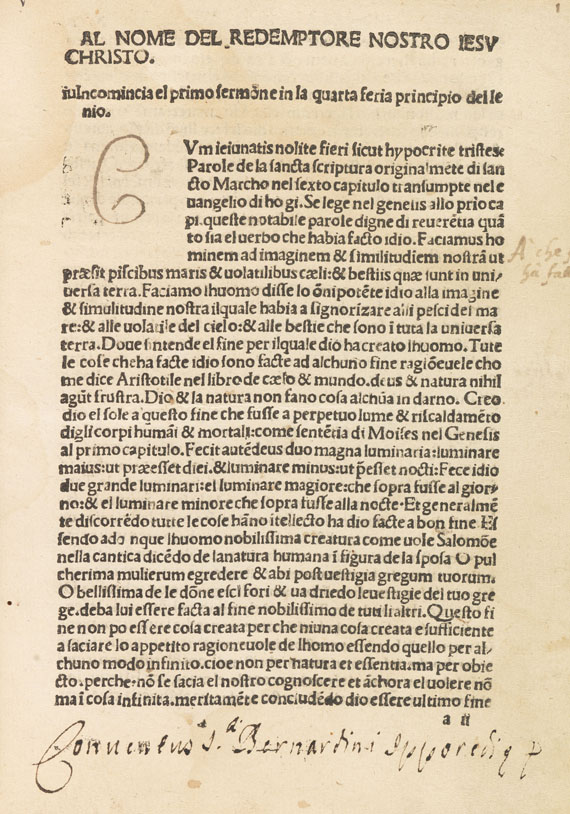 AL NOME DEL REDEMPTORE NOSTRO IESV
CHRISTO.
iuIncomincia el primo sermōne in la quarta feria principio del ie
nio.
C
Vm ieiunatis nolite fieri sicut hypocrite tristes:
Parole de la sancta scriptura originalmēte di san
cto Marcho nel sexto capitulo transumpte nel e
uangelio di hogi. Se lege nel genesis allo prio ca
pi. queste notabile parole digne di reuerētia quā
to sia el uerbo che habia facto idio. Faciamus ho
minem ad imaginem & similitudiem nostrā ut
præsit piscibus maris & uolatilibus cæli: & bestiis quæ sunt in uni/
uersa terra. Faciamo lhuomo disse lo ōnipotēte idio alla imagine
& simulitudine nostra ilquale habia a signorizare alli pesci del ma
re: & alle uolatile del cielo: & alle bestie che sono ī tuta la uniuersa
terra. Doue sintende el fine per ilquale dio ha creato lhuomo. Tute
le cose che ha facte idio sono facte ad alchuno fine ragiōeuele cho
me dice Aristotile nel libro de cælo & mundo. deus & natura nihil
agūt frustra. Dio & la natura non fano cosa alchūa in darno. Creo
dio el sole a questo fine che fusse a perpetuo lume & riscaldamēto
digli corpi humāi & mortali: come sentētia di Moises nel Genesis
al primo capitulo. Fecit autē deus duo magna luminaria: luminare
maius: ut præesset diei. & luminare minus: ut p̄esset nocti: Fece idio
due grande luminari: el luminare magiore: che sopra fusse al gior/
no: & el luminare minore che sopra fusse alla nocte. Et generalmē
te discorrēdo tutte le cose hāno itellecto ha dio facte a bon fine Es
sendo adonque lhuomo nobilissima creatura come uole Salomōe
nella cantica dicēdo de la natura humana ī figura de la sposa O pul
cherima mulierum egredere & abi post uestigia gregum tuorum.
O bellissima de le dōne esci fori & ua driedo le uestigie del tuo gre
ge. deba lui essere facta al fine nobilissimo de tuti li altri. Questo fi
ne non po essere cosa creata per che niuna cosa creata e sufficiente
a saciare lo appetito ragioneuole de lhomo essendo quello per al/
chuno modo infinito. cioe non per natura et essentia. ma per obie
cto. perche nō se sacia el nostro cognoscere et āchora el uolere nō
ma ī cosa infinita. meritamēte concludēdo dio essere ultimo fine
a ii
A che
ha
Conuentus S. Bernardini